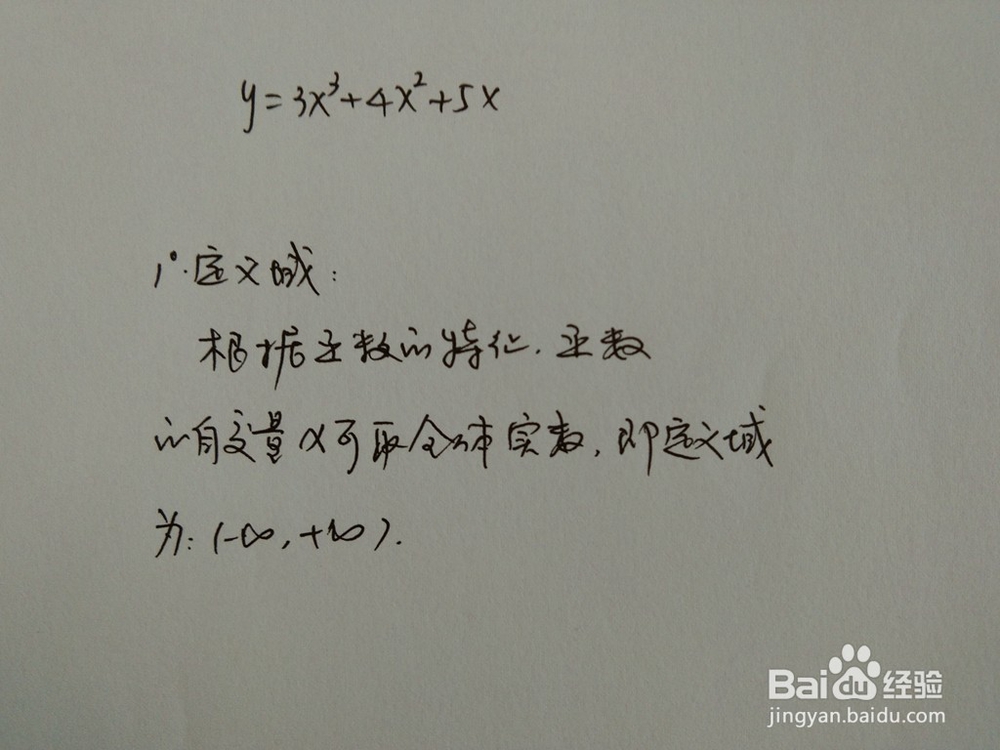 y=3x³+4x²+5x
1°.定义域:
根据函数的特征,函数
的自变量x可取全体实数,即定义域
为:(-∞,+∞).
Baidu经验
jingyan.baidu.com